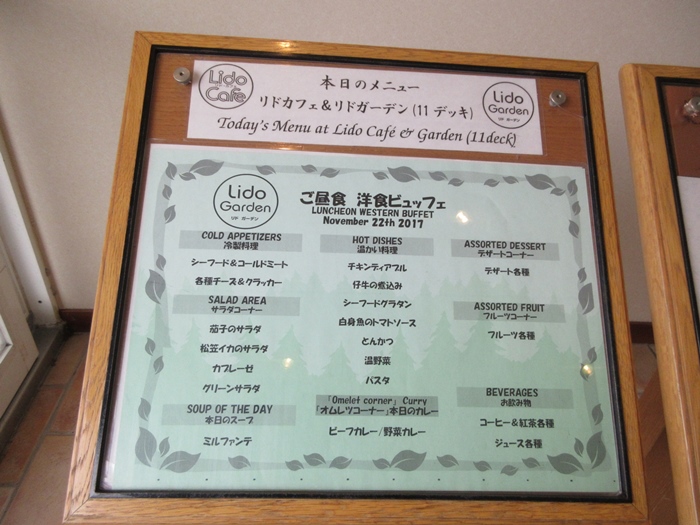 Lido
Cafe
本日のメニュー
リドカフェ＆リドガーデン (11 デッキ)
Today's Menu at Lido Café & Garden (11deck)
Lido
Garden
リド ガーデン
Lido
Garden
リド ガーデン
ご昼食 洋食ビュッフェ
LUNCHEON WESTERN BUFFET
November 22th 2017
COLD APPETIZERS
冷製料理
シーフード＆コールドミート
各種チーズ＆クラッカー
SALAD AREA
サラダコーナー
茄子のサラダ
松笠イカのサラダ
カプレーゼ
グリーンサラダ
SOUP OF THE DAY
本日のスープ
ミルファンテ
HOT DISHES
温かい料理
チキンディアブル
仔牛の煮込み
シーフードグラタン
白身魚のトマトソース
とんかつ
温野菜
パスタ
「Omelet corner」 Curry
「オムレツコーナー」本日のカレー
ビーフカレー/野菜カレー
ASSORTED DESSERT
デザートコーナー
デザート各種
ASSORTED FRUIT
フルーツコーナー
フルーツ各種
BEVERAGES
お飲み物
コーヒー＆紅茶各種
ジュース各種